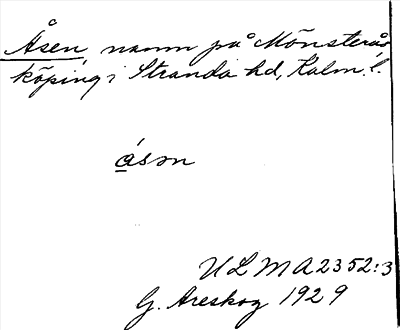 Åsen, namn på Mönsterås
köping i Stranda hd, Kalm. l.
åsən
ULMA 2352:3
G. Areskog 1929